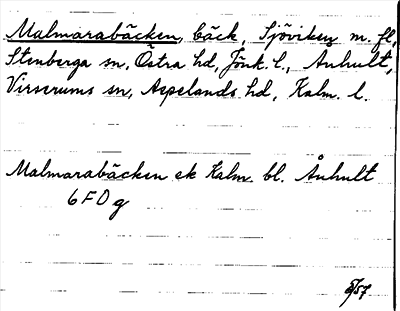 Malmarabäcken, bäck, Sjöviken m. fl,
Stenberga sn, Östra hd, Jönk. l., Ånhult,
Virserums sn, Aspelands hd, Kalm. l.
Malmarabäcken ek Kalm. bl. Ånhult
6 F 0 g
5/57